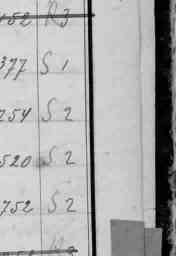 152 R3
377 S 1
254 S 2
520 S 2
752 S 2